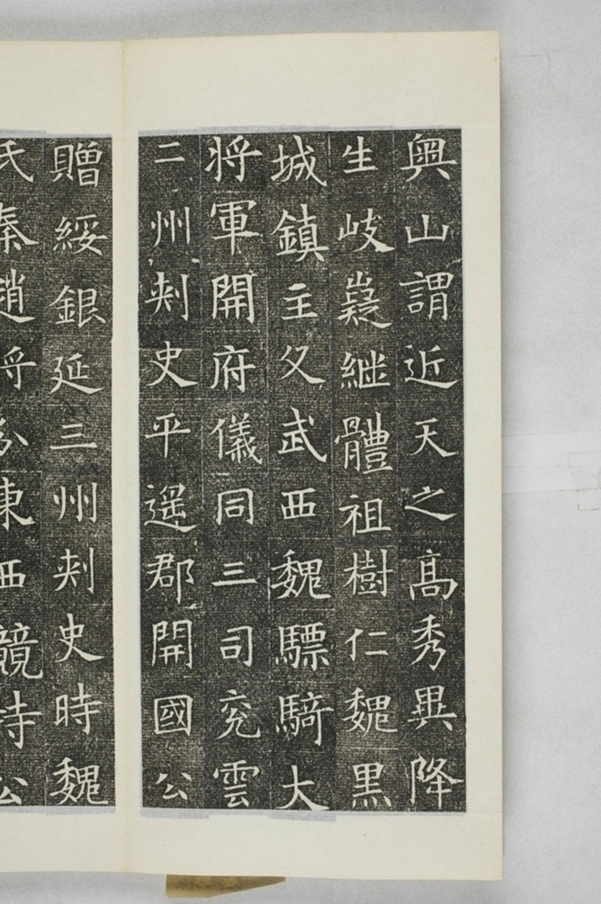 輿山謂近天之高秀異降
生岐嶷継體祖樹仁魏黑
城鎮主父武西魏驃騎大
将軍開府儀同三司兖雲
二州刾史平遥郡開國公
贈綏銀延三州刾史時魏
氏秦趙将分東西競峙公